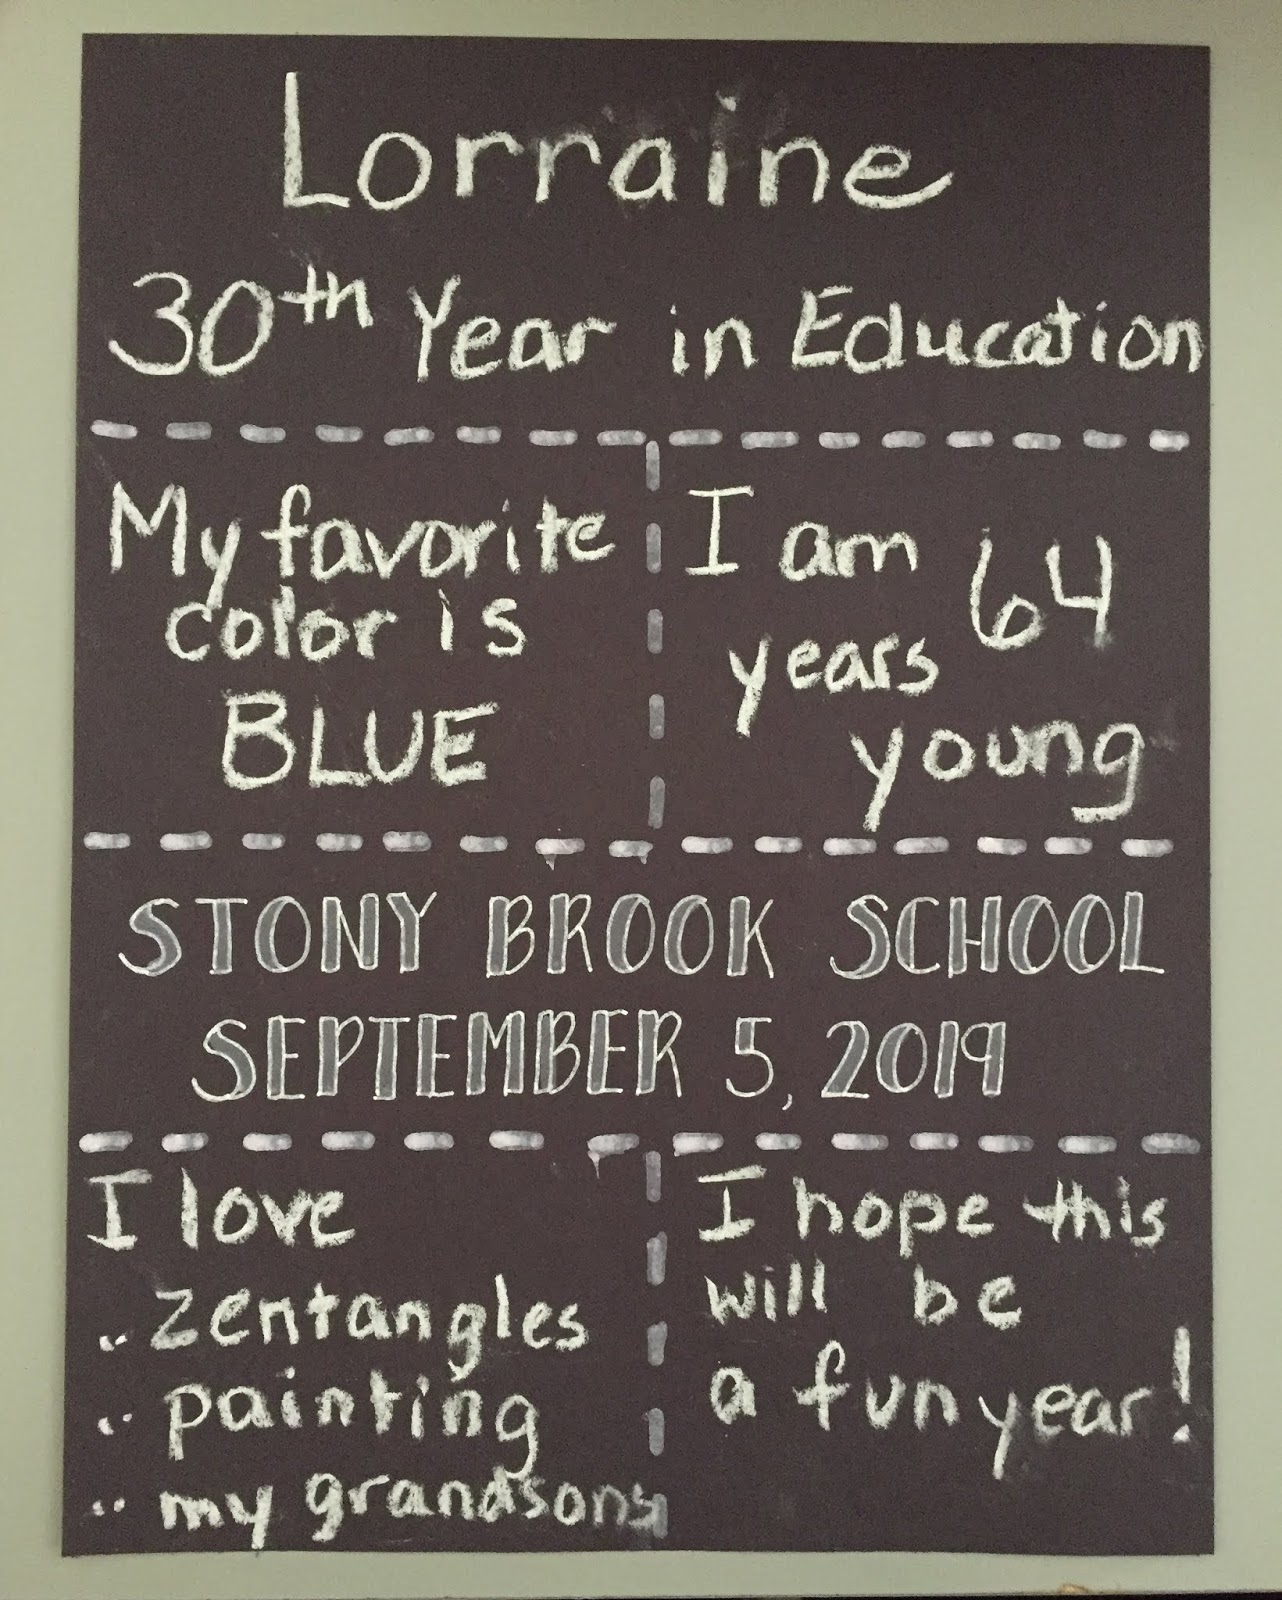 Lorraine
30th Year in Education
My favorite
color is
BLUE
I am 64
years
young
STONY BROOK SCHOOL
SEPTEMBER 5, 2019
I love
.. zentangles
.. painting
.. my grandsons
I hope this
will be
a fun year!